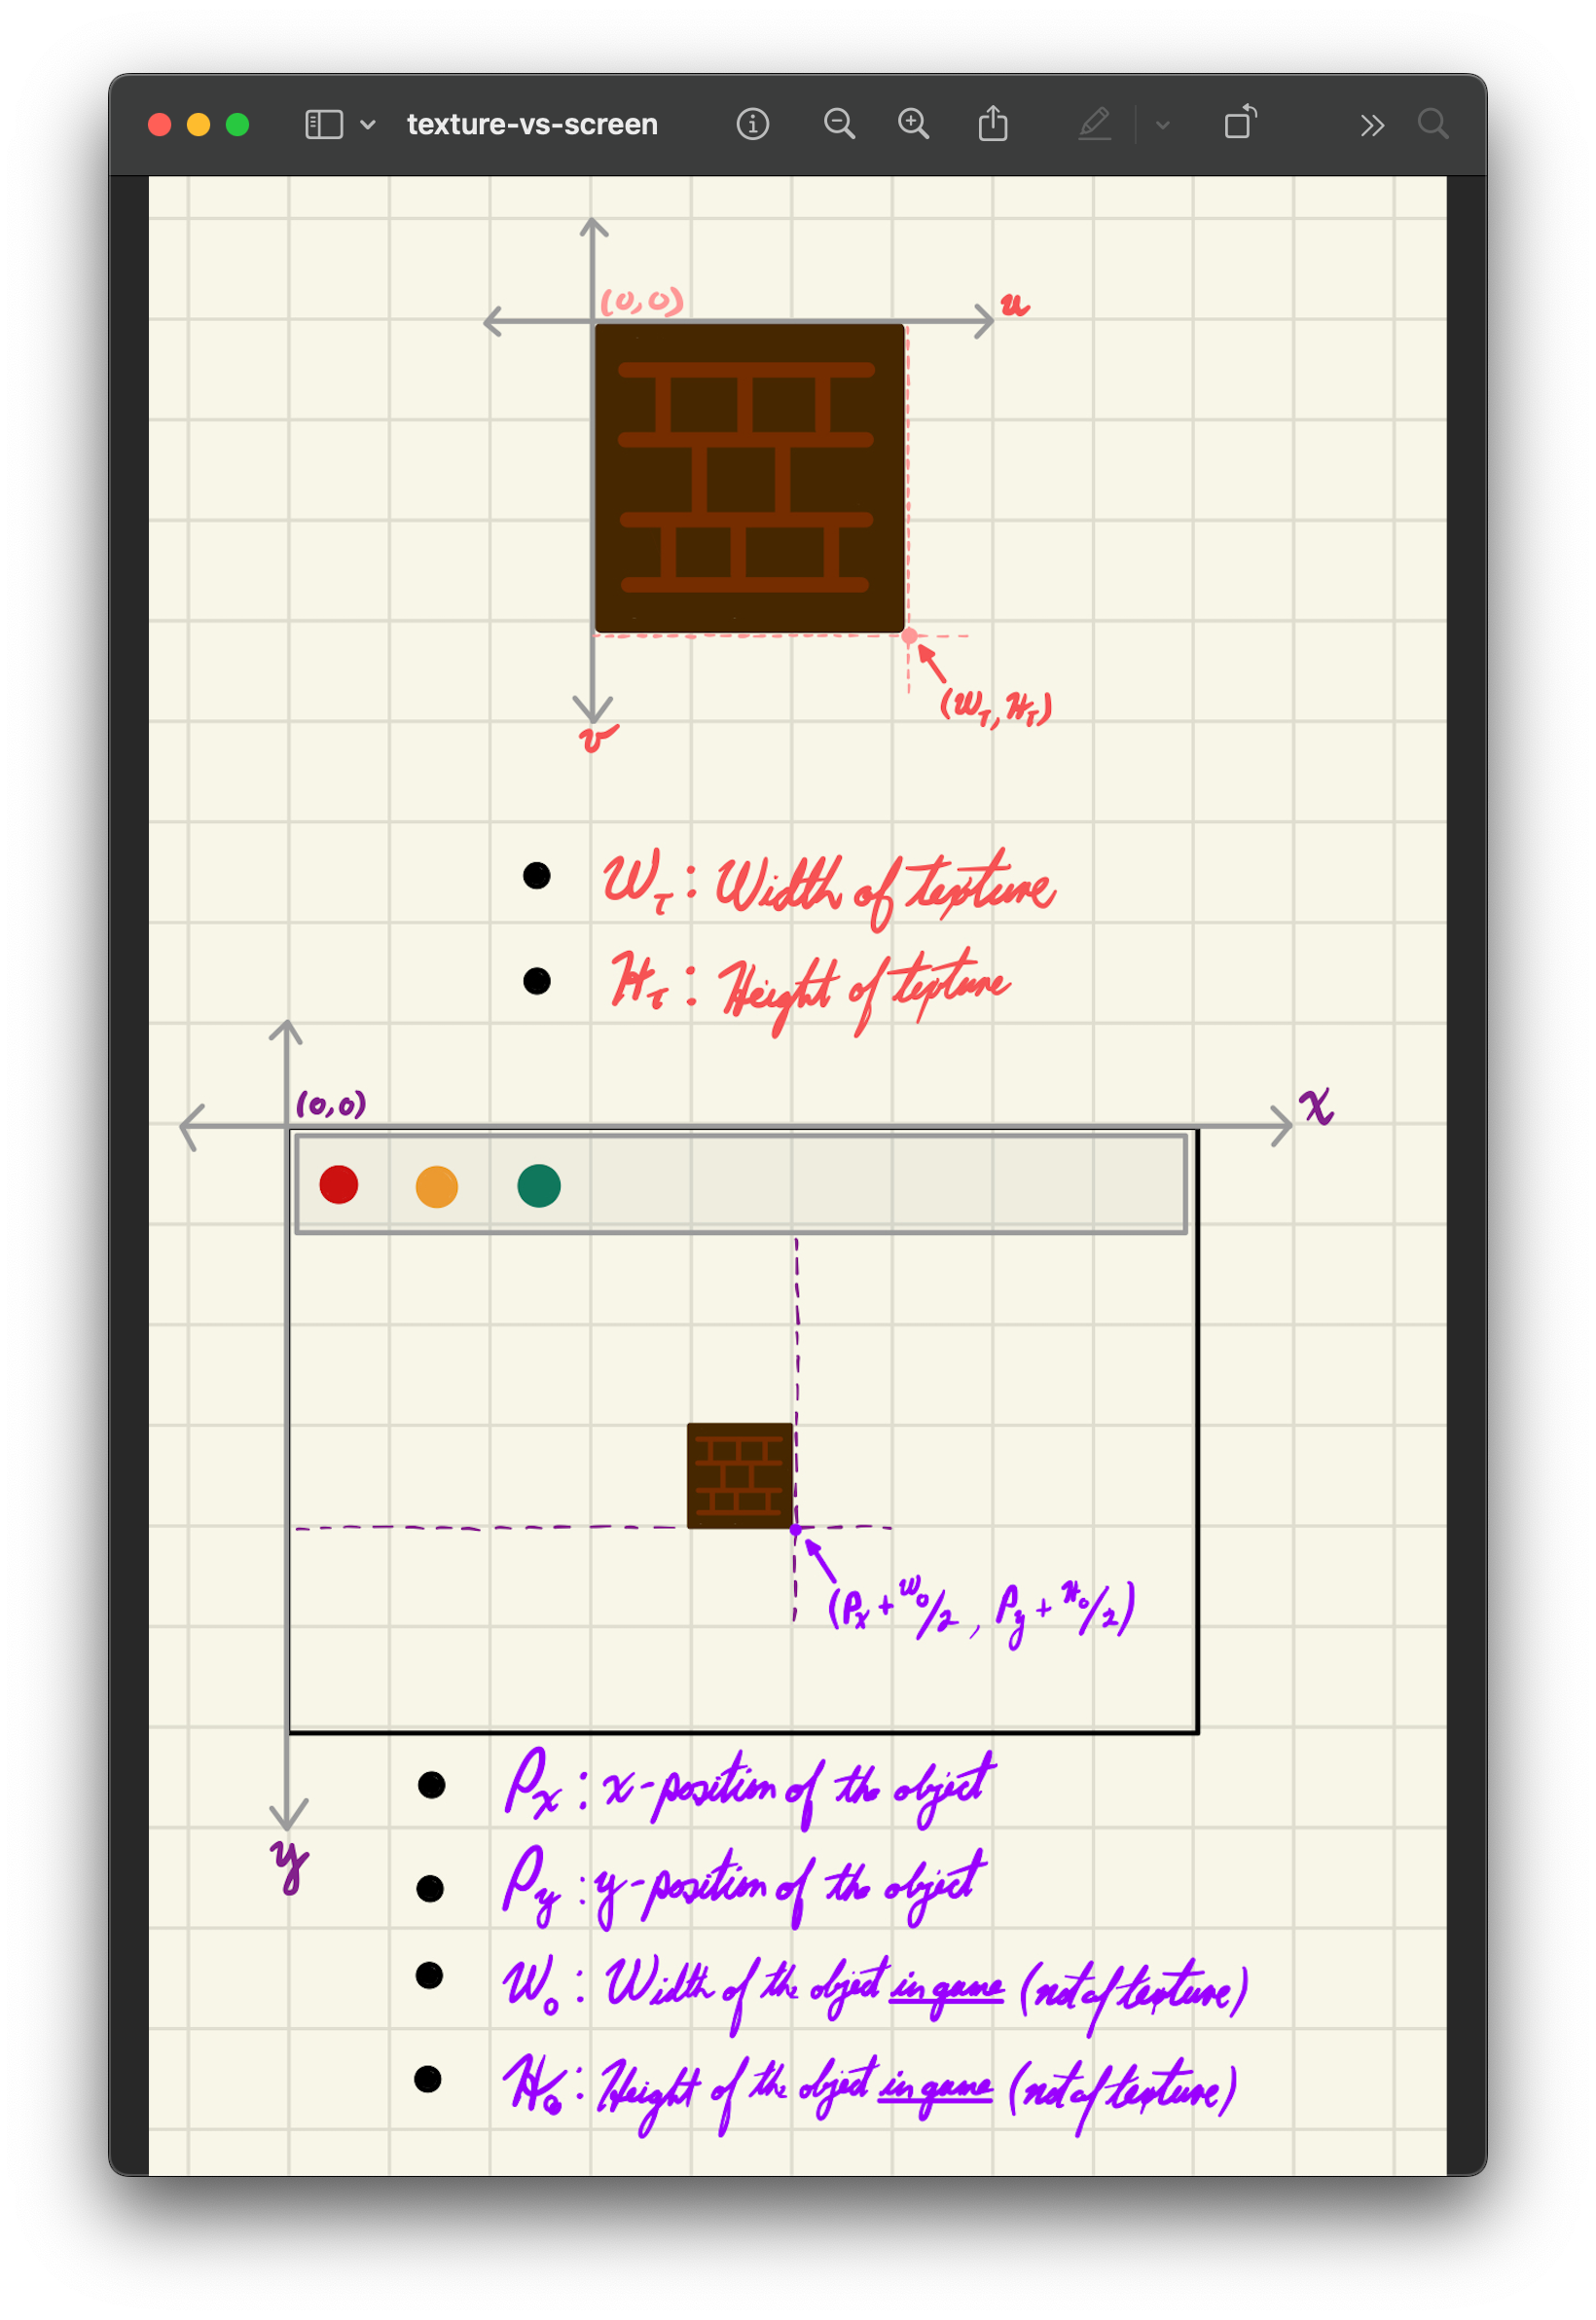 texture-vs-screen
(0,0)
u
(W_T, H_T)
v
W_T : Width of texture
H_T : Height of texture
(0,0)
x
(P_x + W_o/2 , P_y + H_o/2)
P_x : x-position of the object
y
P_y : y-position of the object
W_o : Width of the object in game (not of texture)
H_o : Height of the object in game (not of texture)